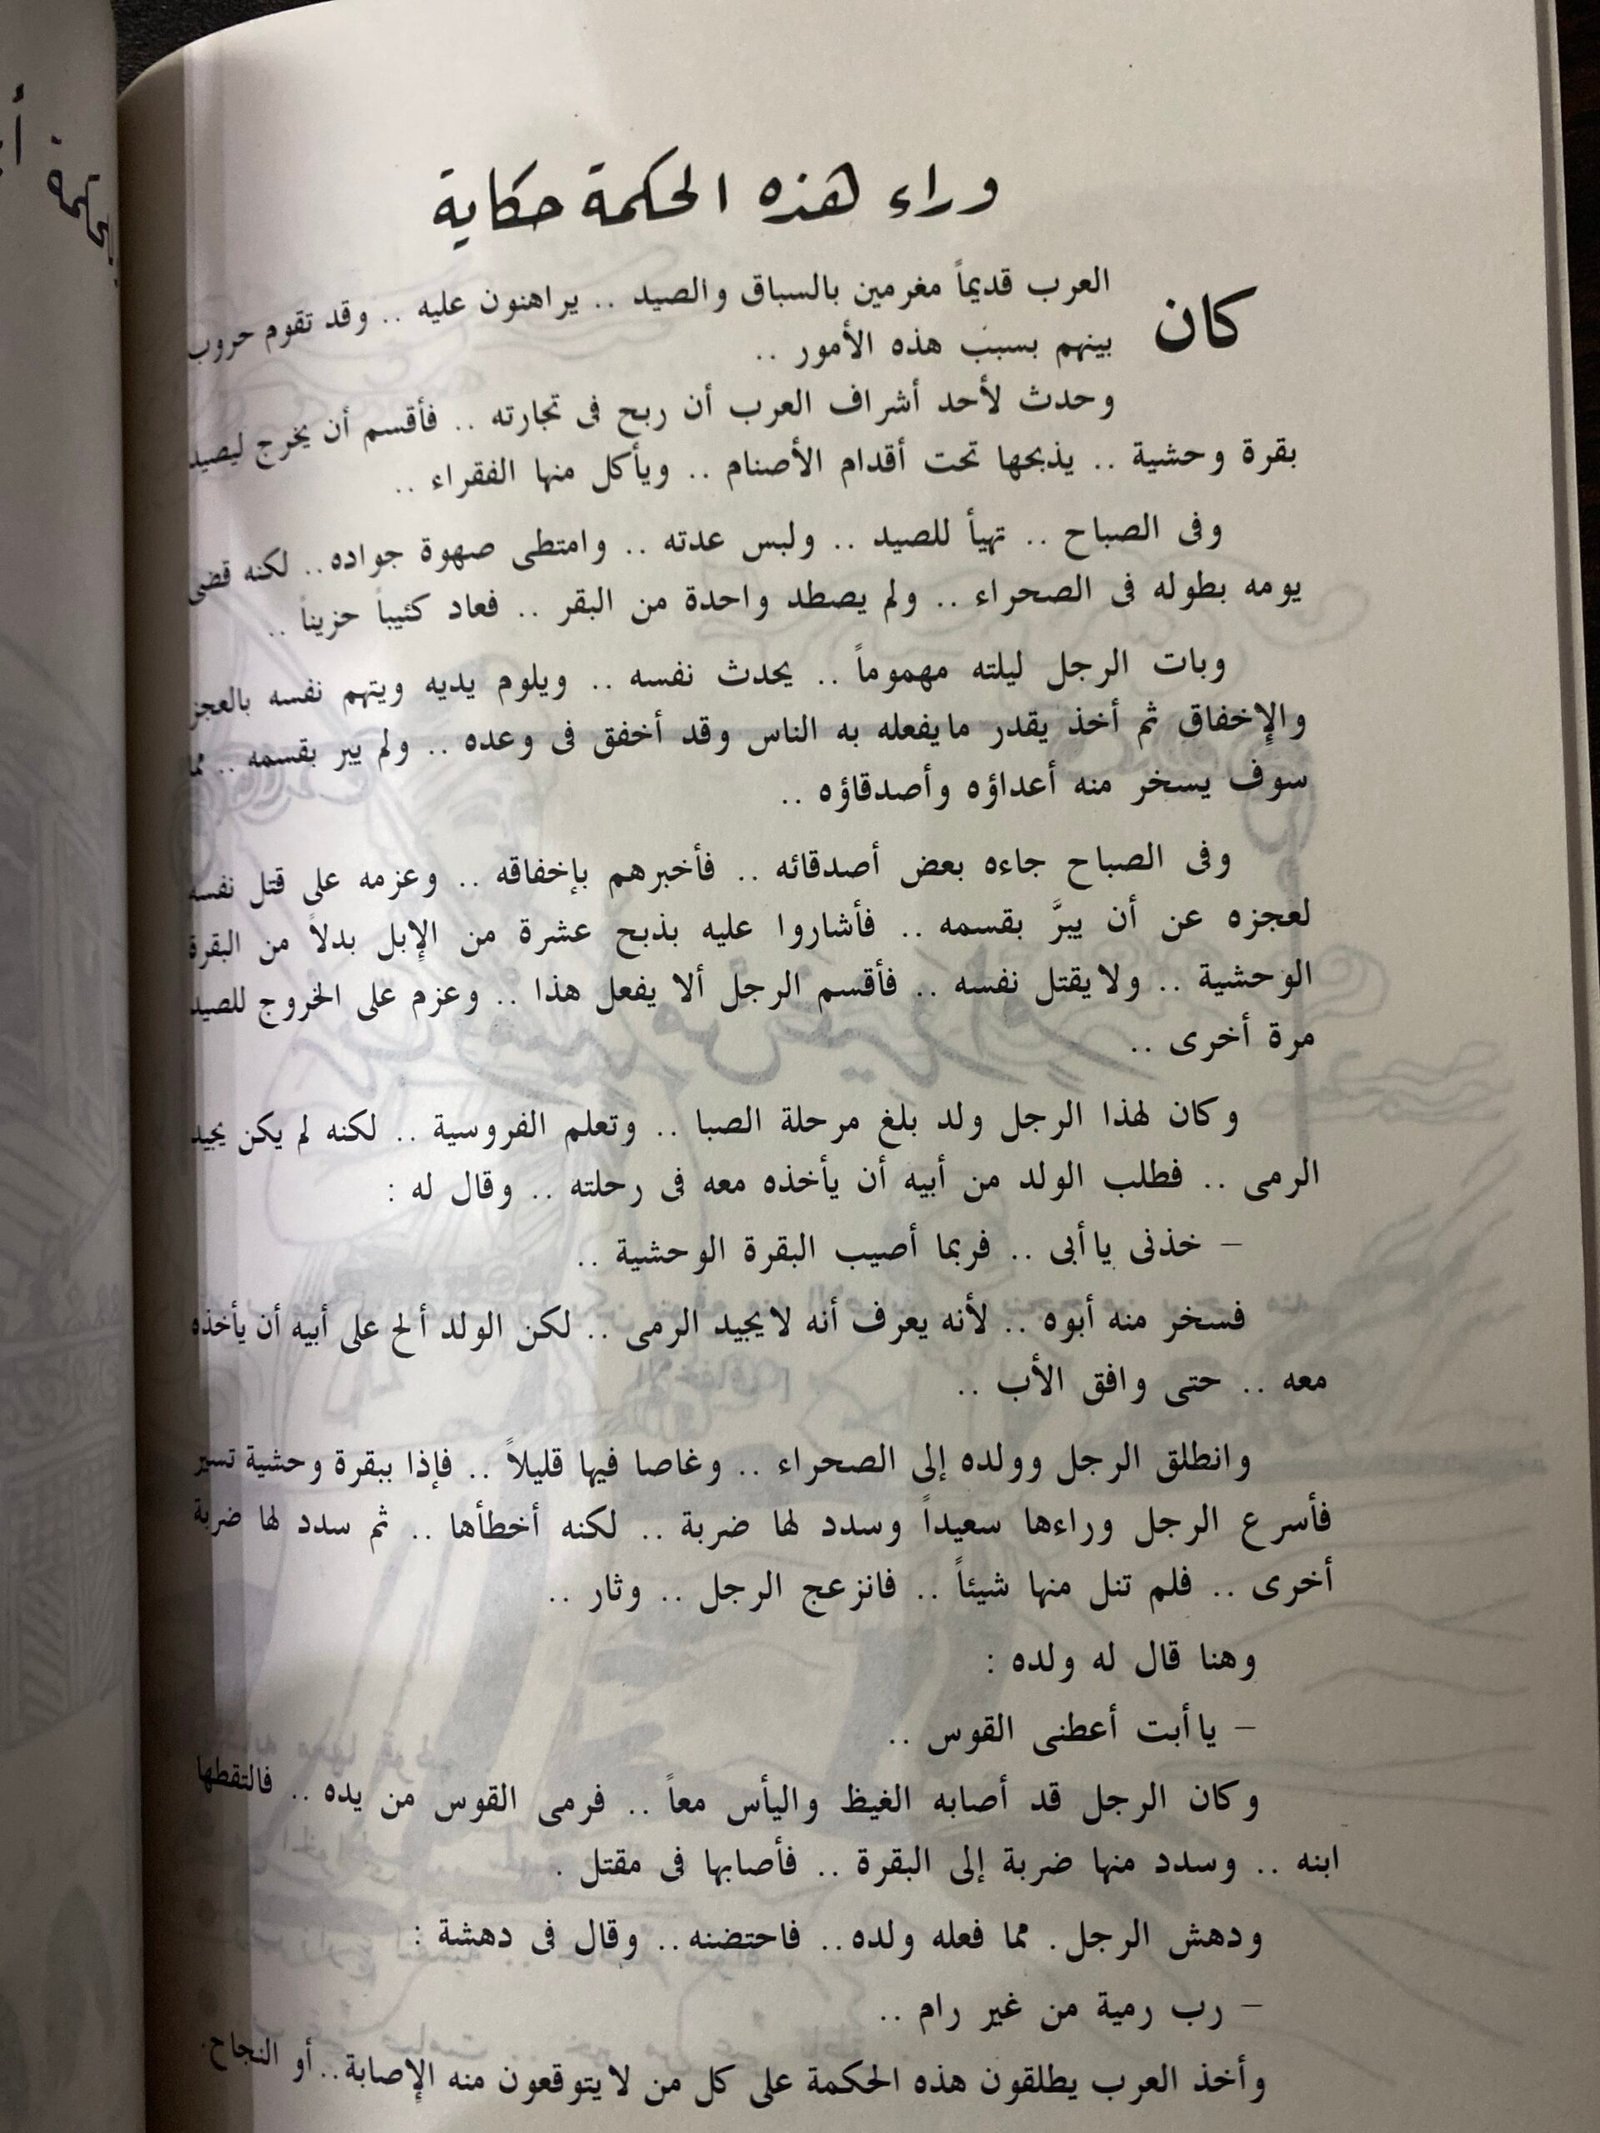 وراء هذه الحكمة حكاية
كان العرب قديماً مغرمين بالسباق والصيد .. يراهنون عليه .. وقد تقوم حروب
بينهم بسبب هذه الأمور ..
وحدث لأحد أشراف العرب أن ربح فى تجارته .. فأقسم أن يخرج ليصيد
بقرة وحشية .. يذبحها تحت أقدام الأصنام .. ويأكل منها الفقراء ..
وفى الصباح .. تهيأ للصيد .. ولبس عدته .. وامتطى صهوة جواده .. لكنه قضى
يومه بطوله فى الصحراء .. ولم يصطد واحدة من البقر .. فعاد كئيباً حزيناً ..
وبات الرجل ليلته مهموماً .. يحدث نفسه .. ويلوم يديه ويتهم نفسه بالعجز
والإخفاق ثم أخذ يقدر مايفعله به الناس وقد أخفق فى وعده .. ولم يبر بقسمه .. مما
سوف يسخر منه أعداؤه وأصدقاؤه ..
وفى الصباح جاءه بعض أصدقائه .. فأخبرهم بإخفاقه .. وعزمه على قتل نفسه
لعجزه عن أن يبرَّ بقسمه .. فأشاروا عليه بذبح عشرة من الإبل بدلاً من البقرة
الوحشية .. ولايقتل نفسه .. فأقسم الرجل ألا يفعل هذا .. وعزم على الخروج للصيد
مرة أخرى ..
وكان لهذا الرجل ولد بلغ مرحلة الصبا .. وتعلم الفروسية .. لكنه لم يكن يجيد
الرمى .. فطلب الولد من أبيه أن يأخذه معه فى رحلته .. وقال له :
– خذنى ياأبى .. فربما أصيب البقرة الوحشية ..
فسخر منه أبوه .. لأنه يعرف أنه لايجيد الرمى .. لكن الولد ألح على أبيه أن يأخذه
معه .. حتى وافق الأب ..
وانطلق الرجل وولده إلى الصحراء .. وغاصا فيها قليلاً .. فإذا ببقرة وحشية تسير
فأسرع الرجل وراءها سعيداً وسدد لها ضربة .. لكنه أخطأها .. ثم سدد لها ضربة
أخرى .. فلم تنل منها شيئاً .. فانزعج الرجل .. وثار ..
وهنا قال له ولده :
– ياأبت أعطنى القوس ..
وكان الرجل قد أصابه الغيظ واليأس معاً .. فرمى القوس من يده .. فالتقطها
ابنه .. وسدد منها ضربة إلى البقرة .. فأصابها فى مقتل .
ودهش الرجل. مما فعله ولده.. فاحتضنه.. وقال فى دهشة :
– رب رمية من غير رام ..
وأخذ العرب يطلقون هذه الحكمة على كل من لايتوقعون منه الإصابة.. أو النجاح.